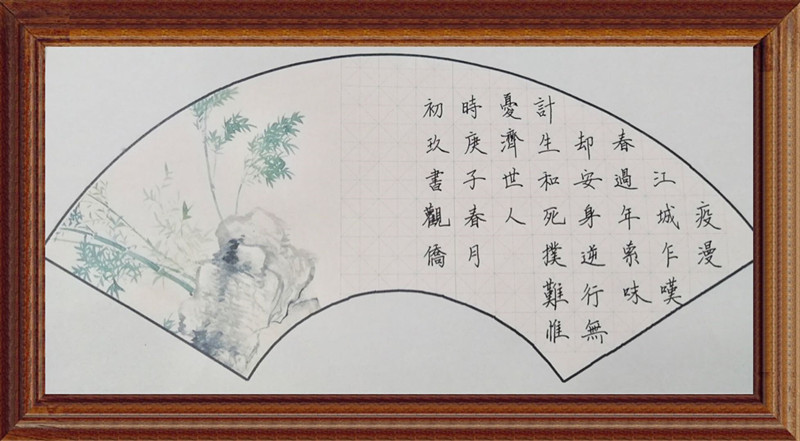 疫漫
江城乍嘆
春過年索味
却安身逆行無
計生和死撲難惟
憂濟世人
時庚子春月
初玖書觀僑